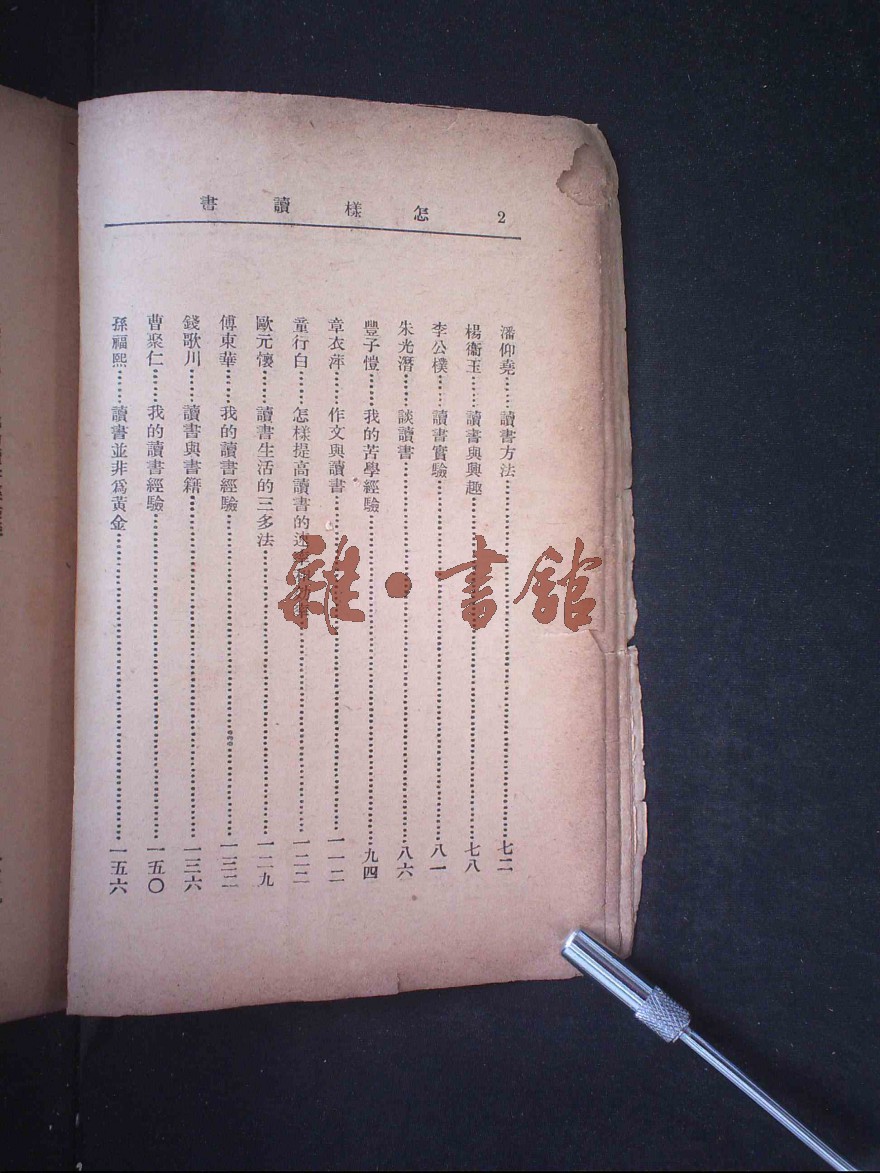 怎樣讀書 2
潘仰堯……讀書方法……七二
楊衞玉……讀書與興趣……七八
李公樸……讀書實驗……八一
朱光潛……談讀書……八六
豐子愷……我的苦學經驗……九四
章衣萍……作文與讀書……一一二
童行白……怎樣提高讀書的速……一二二
歐元懷……讀書生活的三多法……一二九
傅東華……我的讀書經驗……一三二
錢歌川……讀書與書籍……一三六
曹聚仁……我的讀書經驗……一五〇
孫福熙……讀書並非爲黃金……一五六
雜·書館